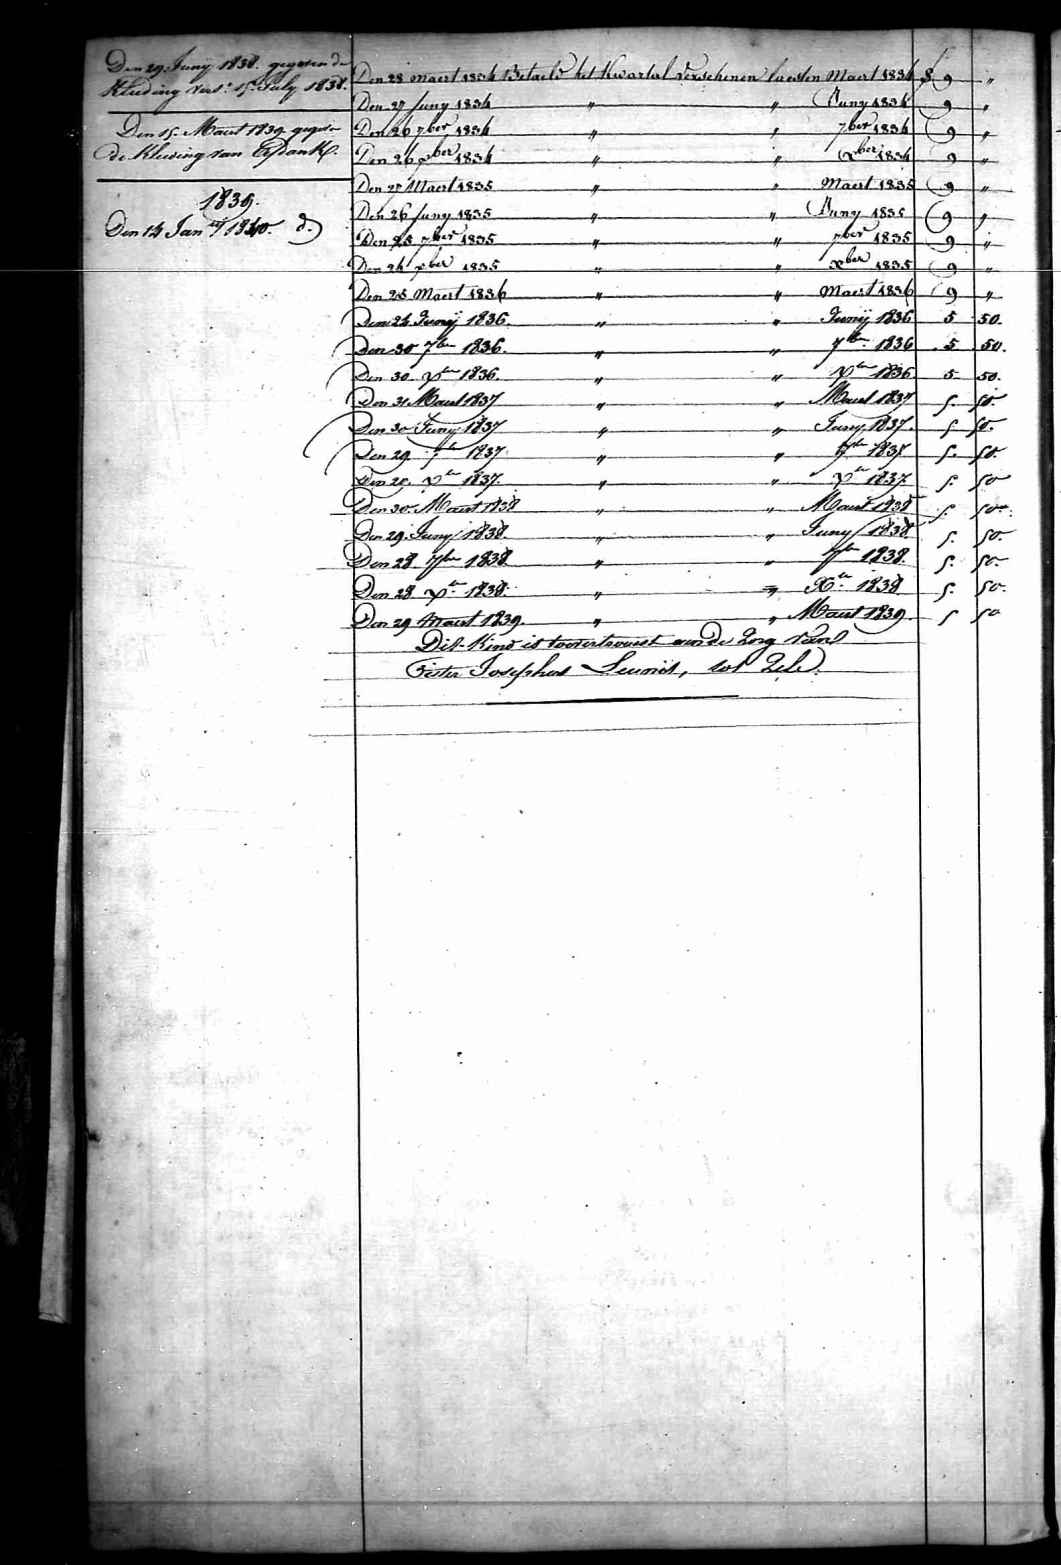 Den 29. Juny 1838. gegeven de
Kleeding vers: 15. July 1838.
Den 15. Maert 1839 gegeven
de Kleeding van
1839.
Den 14 Jan.ry 1840. d.
Den 28 Maert 1834 Betaeld het Kwartal Verschenen laesten Maert 1834 f 9 "
Den 27 Juny 1834 " " Juny 1834 9 "
Den 26 7ber 1834 " " 7ber 1834 9 "
Den 26 xber 1834 " " xber 1834 9 "
Den 27 Maert 1835 " " Maert 1835 9 "
Den 26 Juny 1835 " " Juny 1835 9 "
Den 25 7ber 1835 " " 7ber 1835 9 "
Den 24 xber 1835 " " xber 1835 9 "
Den 25 Maert 1836 " " Maert 1836 9 "
Den 24 Junij 1836. " " Junij 1836 5 50.
Den 30 7ber 1836. " " 7ber 1836 5 50.
Den 30. Xber 1836. " " Xber 1836. 5 50.
Den 31 Maert 1837 " " Maert 1837 5. 50.
Den 30 Juny 1837 " " Juny 1837. 5 50.
Den 29 7ber 1837 " " 7ber 1837 5. 50
Den 29. Xber 1837. " " Xber 1837. 5. 50
Den 30. Maert 1838 " " Maert 1838 5. 50
Den 29. Juny 1838. " " Juny 1838 5. 50.
Den 28 7ber 1838. " " 7ber 1838. 5. 50.
Den 28 Xber 1838. " " Xber 1838 5. 50.
Den 29 Maert 1839 " " Maert 1839. 5 50
Dit Kind is toevertrouwt aen de Zorg van
Sister Josephus Leunis, tot Zele.